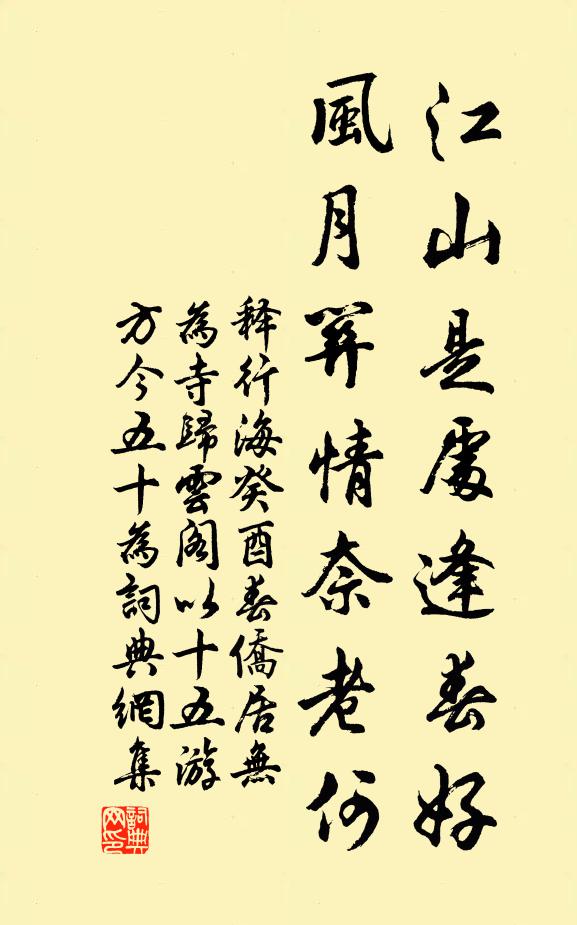 江山是處逢春好
風月關情奈老何
释行海癸酉春僑居無
為寺歸雲閣以十五游
方今五十為詞典網集
詞典网印